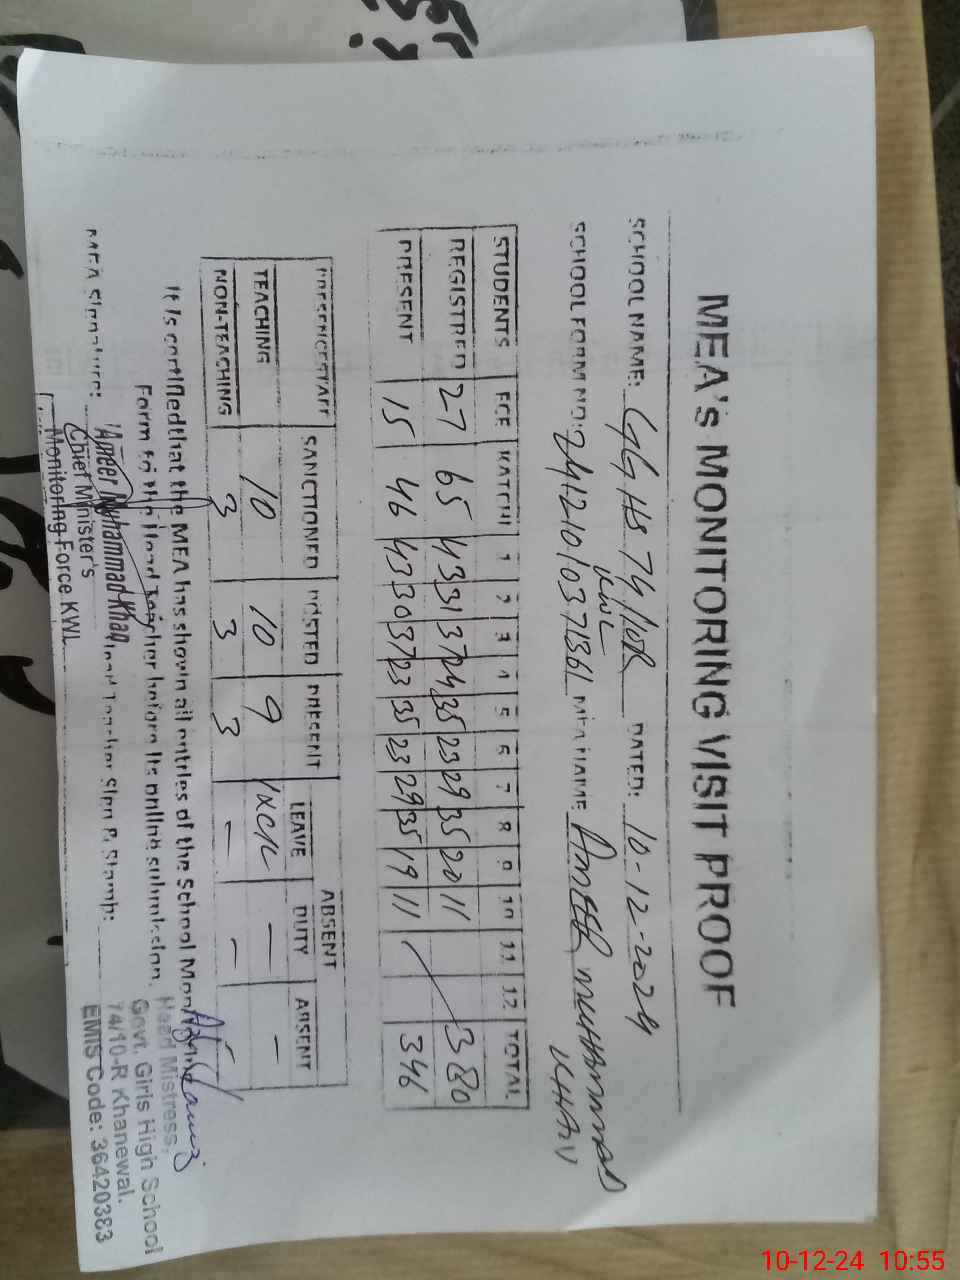 MEA's MONITORING VISIT PROOF
SCHOOL NAME: GGHS 74/10R KWL DATED: 10-12-2024
SCHOOL FORM NO: MEA NAME Ameer Muhammad Khan
STUDENTS ECE KATCHI 1 2 3 4 5 6 7 8 9 10 11 12 TOTAL
REGISTRED 27 65 43 31 37 24 35 23 29 35 20 11 380
PRESENT 15 46 43 30 37 23 35 23 29 35 19 11 346
PRESENCE STAFF SANCTIONED POSTED PRESENT ABSENT
LEAVE DUTY ABSENT
TEACHING 10 10 9 - -
NON-TEACHING 3 3 3 - -
It is certified that the MEA has shown all entries of the School
Form to the Head Teacher before its online submission.
MEA Signature: Head Teacher Sign & Stamp:
Ameer Muhammad Khan
Chief Minister's
Monitoring Force KWL
Head Mistress,
Govt. Girls High School
74/10-R Khanewal.
EMIS Code: 36420383
10-12-24 10:55